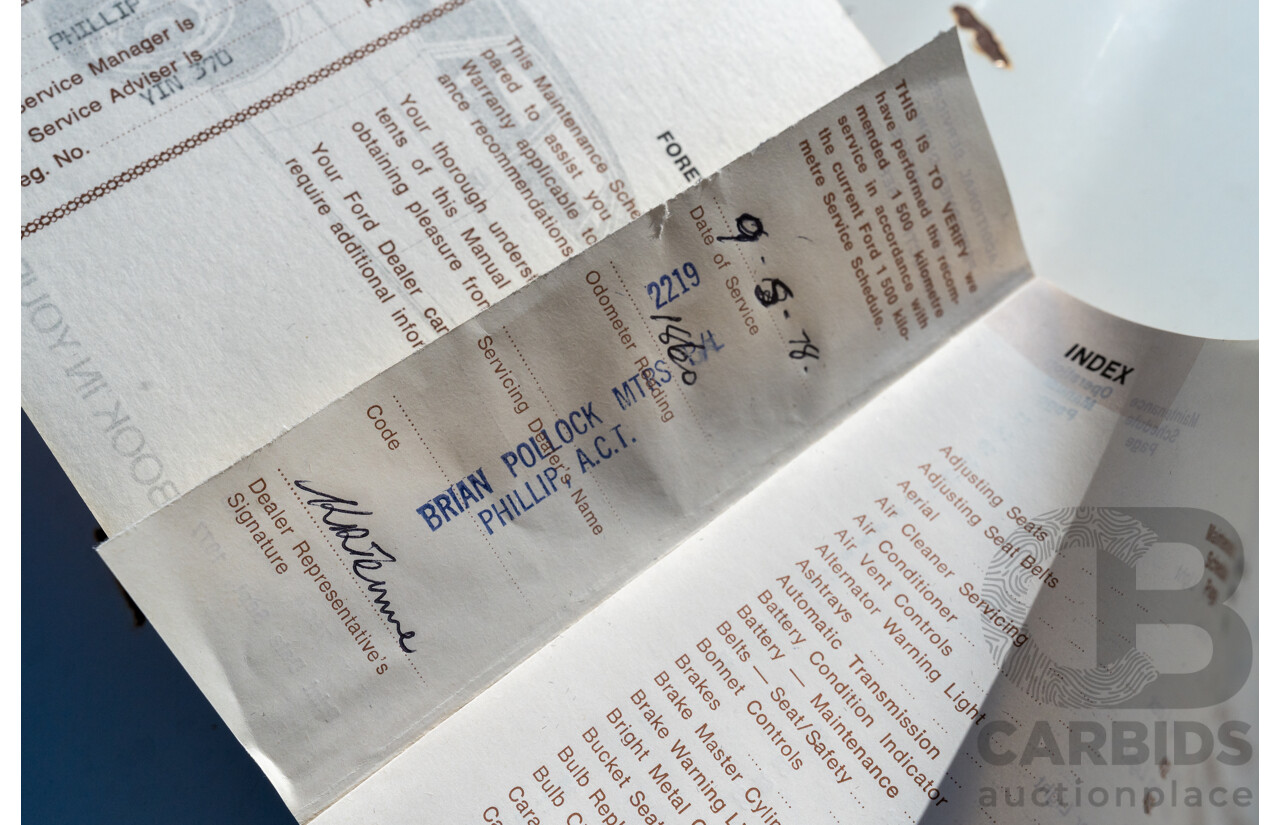 PHILLIP
Service Manager is
Service Adviser is
YIN 370
eg. No.
This Maintenance Sche
pared to assist you
Warranty applicable to
ance recommendations
Your thorough unders
tents of this Manual
obtaining pleasure from
Your Ford Dealer can
require additional infor
FORE
BOOK IN YOUR
THIS IS TO VERIFY we
have performed the recom-
mended 1 500 kilometre
service in accordance with
the current Ford 1 500 kilo-
metre Service Schedule.
9-5-78.
Date of Service
2219
1860
Odometer Reading
BRIAN POLLOCK MTRS P/L
PHILLIP, A.C.T.
Servicing Dealer's Name
Code
Dealer Representative's
Signature
INDEX
Adjusting Seats
Adjusting Seat Belts
Aerial
Air Cleaner Servicing
Air Conditioner
Air Vent Controls
Alternator Warning Light
Ashtrays
Automatic Transmission
Battery Condition Indicator
Battery — Maintenance
Belts — Seat/Safety
Bonnet Controls
Brakes
Brake Master Cylin
Brake Warning L
Bright Metal
Bucket Sea
Bulb Rep
Bulb C
Cara
Ca
CARBIDS
auctionplace